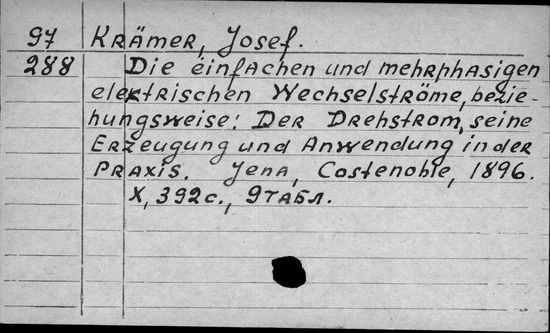 97 Krämer, Josef.
288 Die einfachen und mehrphasigen
elektrischen Wechselströme, bezie-
hungsweise: Der Drehstrom, seine
Erzeugung und Anwendung in der
Praxis. Jena, Costenoble, 1896.
X, 392 с., 9 табл.